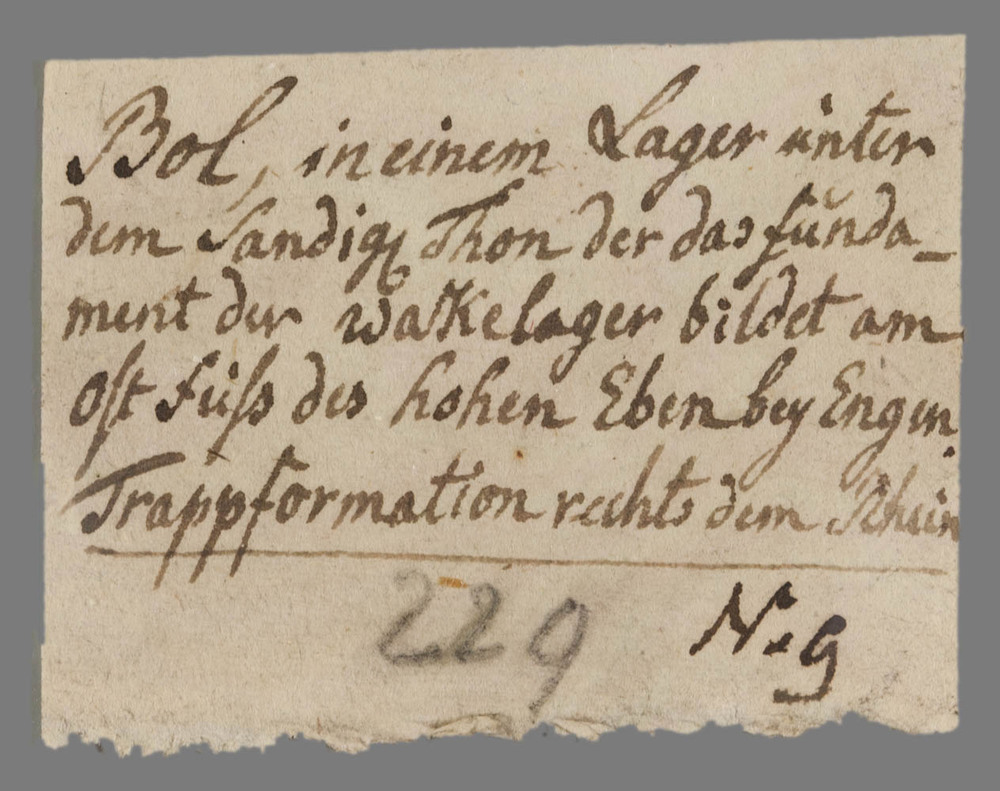 Bol, in einem Lager unter
dem Sandigen Thon der das funda-
ment der wakkelager bildet am
Ost Fuss des hohen Eben bey Engen.
Trappformation rechts dem Rhein
229 N. 9